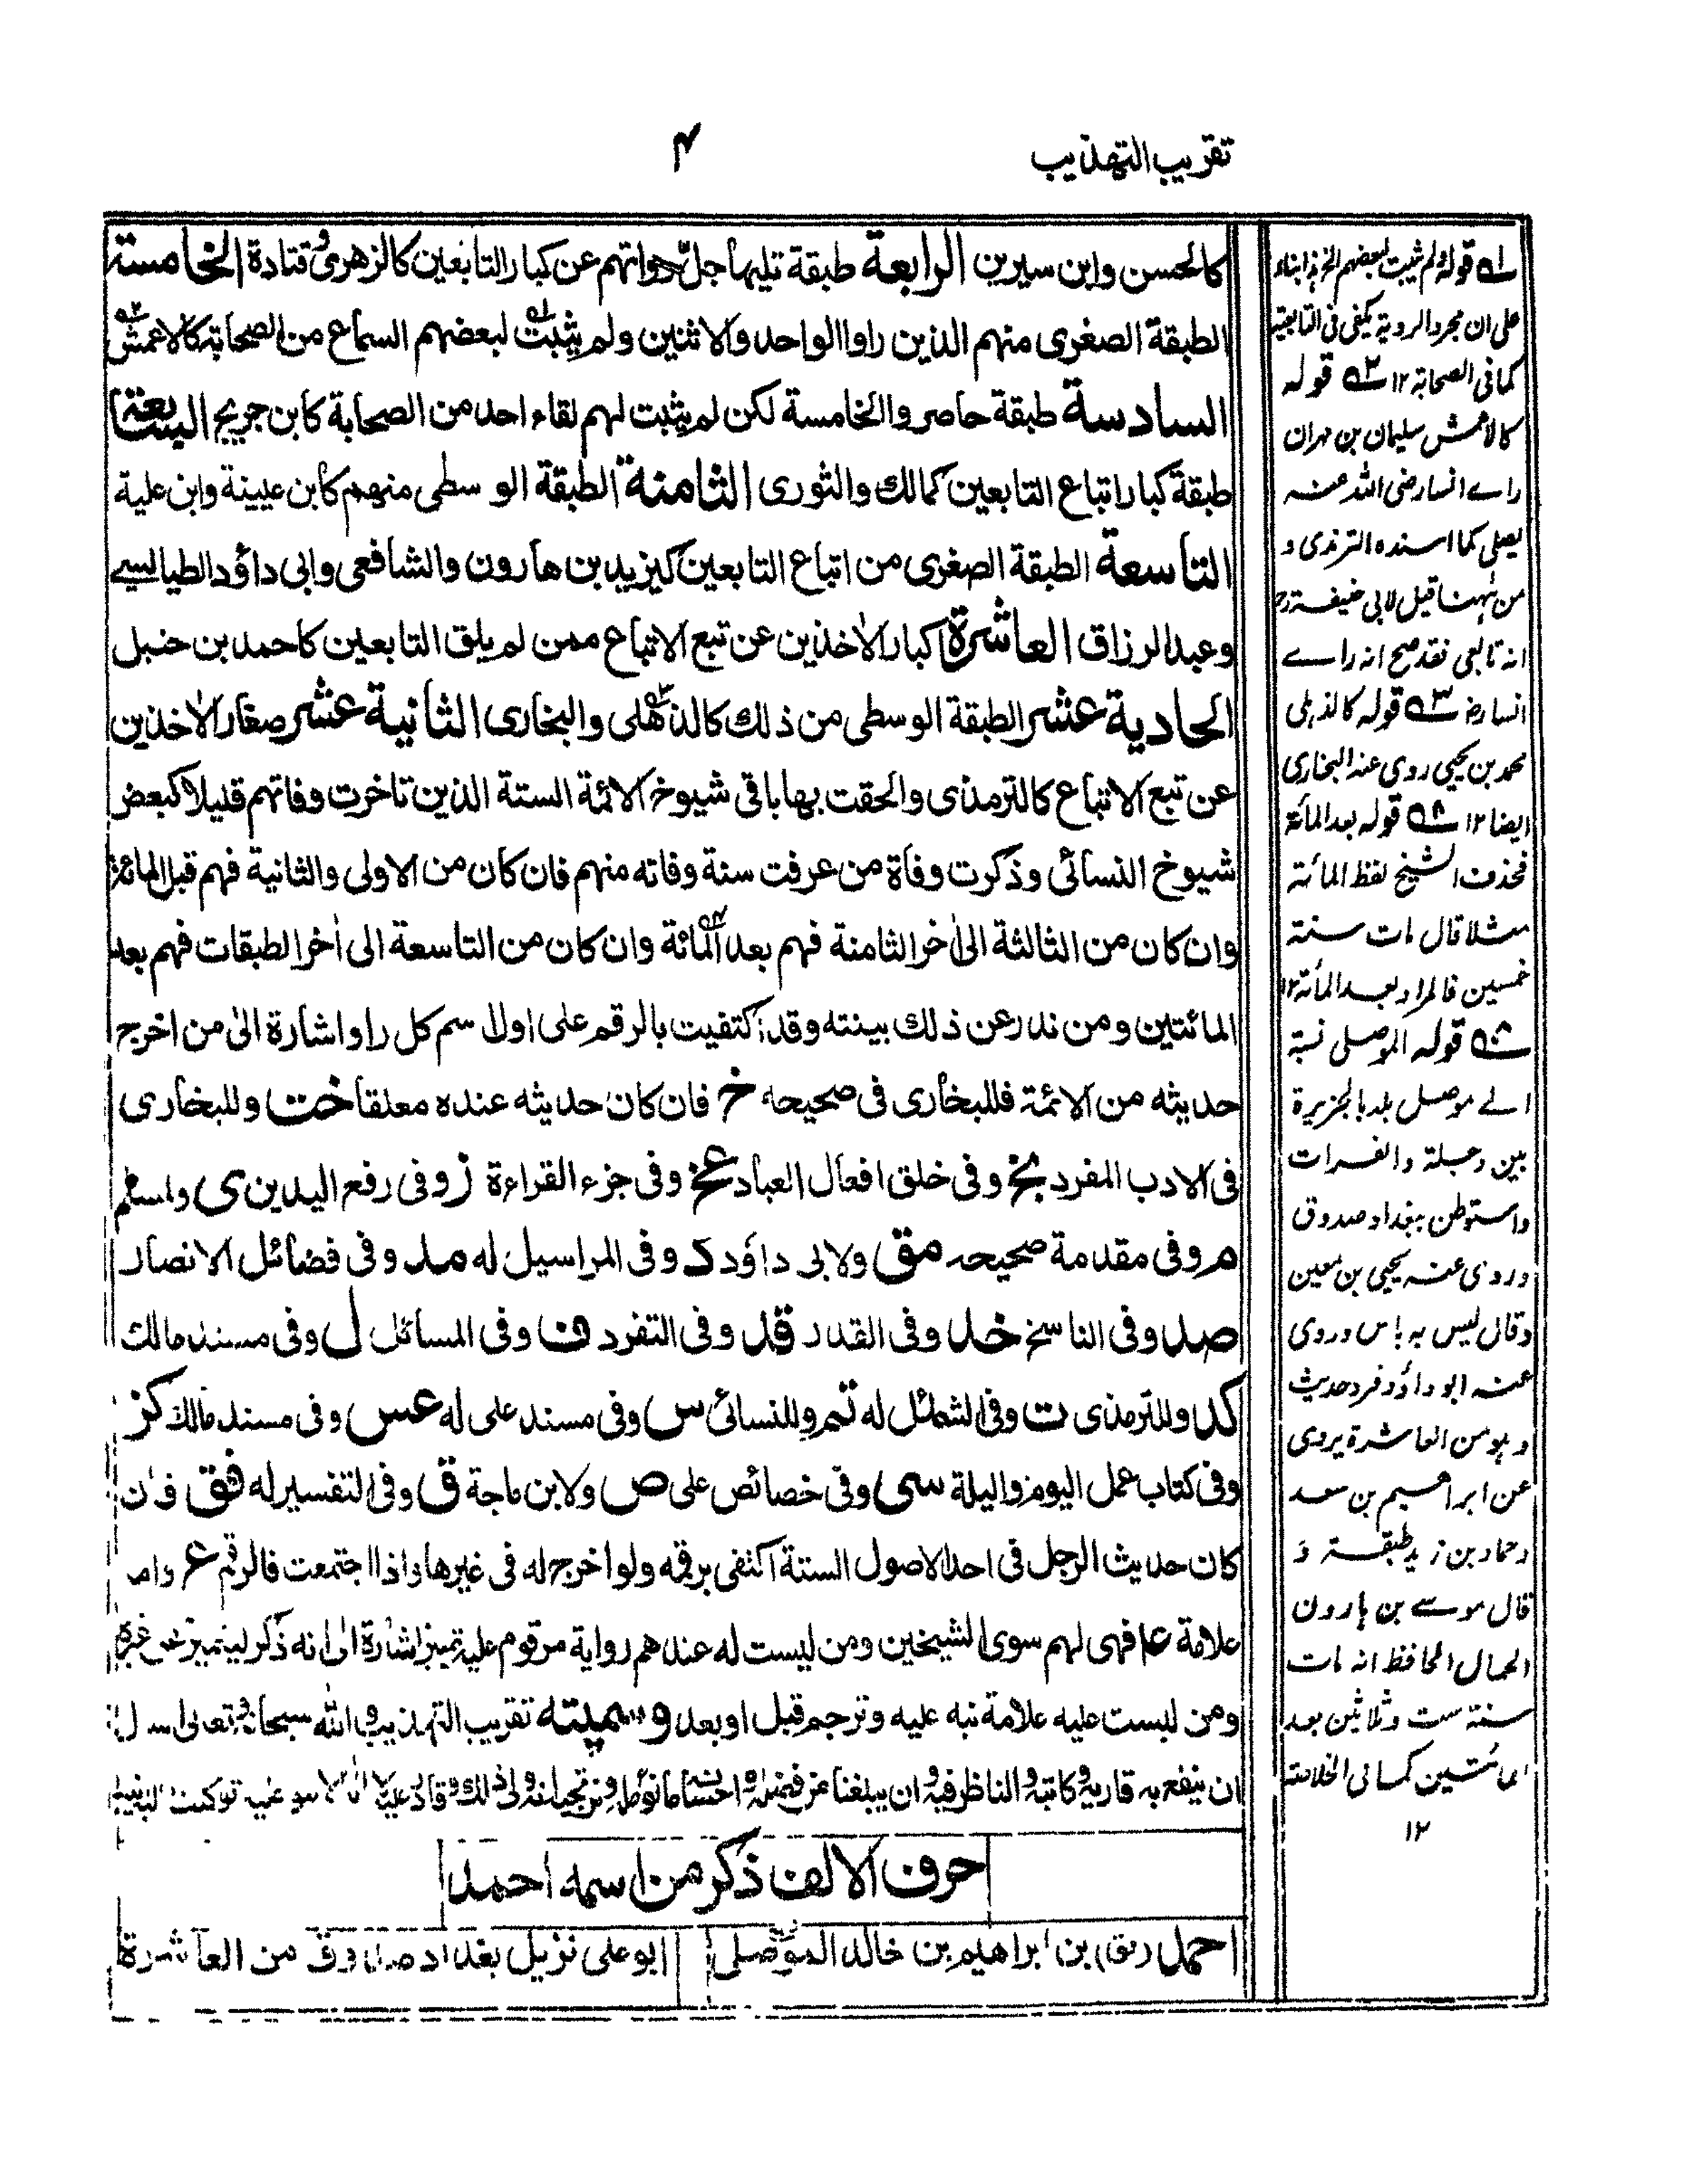 تقريب التهذيب
٤
كالحسن وابن سيرين الرابعة طبقة تليها جل رواتهم عن كبار التابعين كالزهري وقتادة الخامسة
الطبقة الصغرى منهم الذين راوا الواحد والاثنين ولم يثبت لبعضهم السماع من الصحابة كالاعمش
السادسة طبقة حاصروا الخامسة لكن لم يثبت لهم لقاء احد من الصحابة كابن جريج السابعة
طبقة كبار اتباع التابعين كمالك والثوري الثامنة الطبقة الوسطى منهم كابن عيينة وابن علية
التاسعة الطبقة الصغرى من اتباع التابعين كيزيد بن هارون والشافعي وابي داؤد الطيالسي
وعبد الرزاق العاشرة كبار الاخذين عن تبع الاتباع ممن لم يلق التابعين كاحمد بن حنبل
الحادية عشر الطبقة الوسطى من ذلك كالذهلي والبخاري الثانية عشر صغار الاخذين
عن تبع الاتباع كالترمذي والحقت بها باقي شيوخ الائمة الستة الذين تاخرت وفاتهم قليلا كبعض
شيوخ النسائي وذكرت وفاة من عرفت سنة وفاته منهم فان كان من الاولى والثانية فهم قبل المائة
وان كان من الثالثة الى اخر الثامنة فهم بعد المائة وان كان من التاسعة الى اخر الطبقات فهم بعد
المائتين ومن ندر عن ذلك بينته وقد اكتفيت بالرقم على اول اسم كل راو اشارة الى من اخرج
حديثه من الائمة فللبخاري في صحيحه خ فان كان حديثه عنده معلقا خت وللبخاري
في الادب المفرد بخ وفي خلق افعال العباد عخ وفي جزء القراءة ز وفي رفع اليدين ى ولمسلم
م وفي مقدمة صحيحه مق ولابي داؤد د وفي المراسيل له مد وفي فضائل الانصار
صد وفي الناسخ خد وفي القدر قد وفي التفرد ف وفي المسائل ل وفي مسند مالك
كد وللترمذي ت وفي الشمائل له تم وللنسائي س وفي مسند علي له عس وفي مسند مالك كن
وفي كتاب عمل اليوم والليلة سي وفي خصائص علي ص ولابن ماجة ق وفي التفسير له فق فان
كان حديث الرجل في احد الاصول الستة اكتفى برقمه ولو اخرج له في غيرها واذا اجتمعت فالرقم ع واما
علامة عا فهي لهم سوى الشيخين ومن ليست له عندهم رواية مرقوم عليه تمييز اشارة الى انه ذكر ليتميز عن غيره
ومن ليست عليه علامة نبه عليه وترجم قبل او بعد وسميته تقريب التهذيب والله سبحانه وتعالى اسال
ان ينفع به قاريه وكاتبه والناظر فيه وان يبلغنا من فضله واحسانه ما نؤمله ونرتجيه انه ولي ذلك والقادر عليه لا اله الا هو عليه توكلت واليه انيب
حرف الالف ذكر من اسمه احمد
احمد (دفق) بن ابراهيم بن خالد الموصلي ابو علي نزيل بغداد صدوق من العاشرة
له قوله ولم يثبت لبعضهم الخ هذا بناء
على ان مجرد الروية يكفي في التابعية
كما في الصحابة ١٢ ٢ه قوله
كالاعمش سليمان بن مهران
راے انسا رضي الله عنه
يصلي كما اسنده الترمذي و
من ههنا قيل لابي حنيفة رح
انه تابعي فقد صح انه راے
انسا رض ٣ه قوله كالذهلي
محمد بن يحيى روى عنه البخاري
ايضا ١٢ ٤ه قوله بعد المائة
فحذف الشيخ لفظ المائة
مثلا قال مات سنة
خمسين فالمراد بعد المائة ١٢
٥ه قوله الموصلي نسبة
الے موصل بلد بالجزيرة
بين دجلة والفرات
واستوطن ببغداد صدوق
وروى عنه يحيى بن معين
وقال ليس به باس وروى
عنه ابو داؤد فرد حديث
وهو من العاشرة يروي
عن ابراهيم بن سعد
وحماد بن زيد طبقة و
قال موسے بن هارون
الحمال الحافظ انه مات
سنة ست وثلاثين بعد
المائتين كما في الخلاصة
١٢